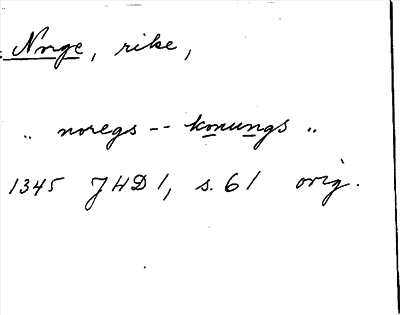 : Norge, rike,
„ noregs -- konungs „
1345 JHD 1, s. 61 orig.